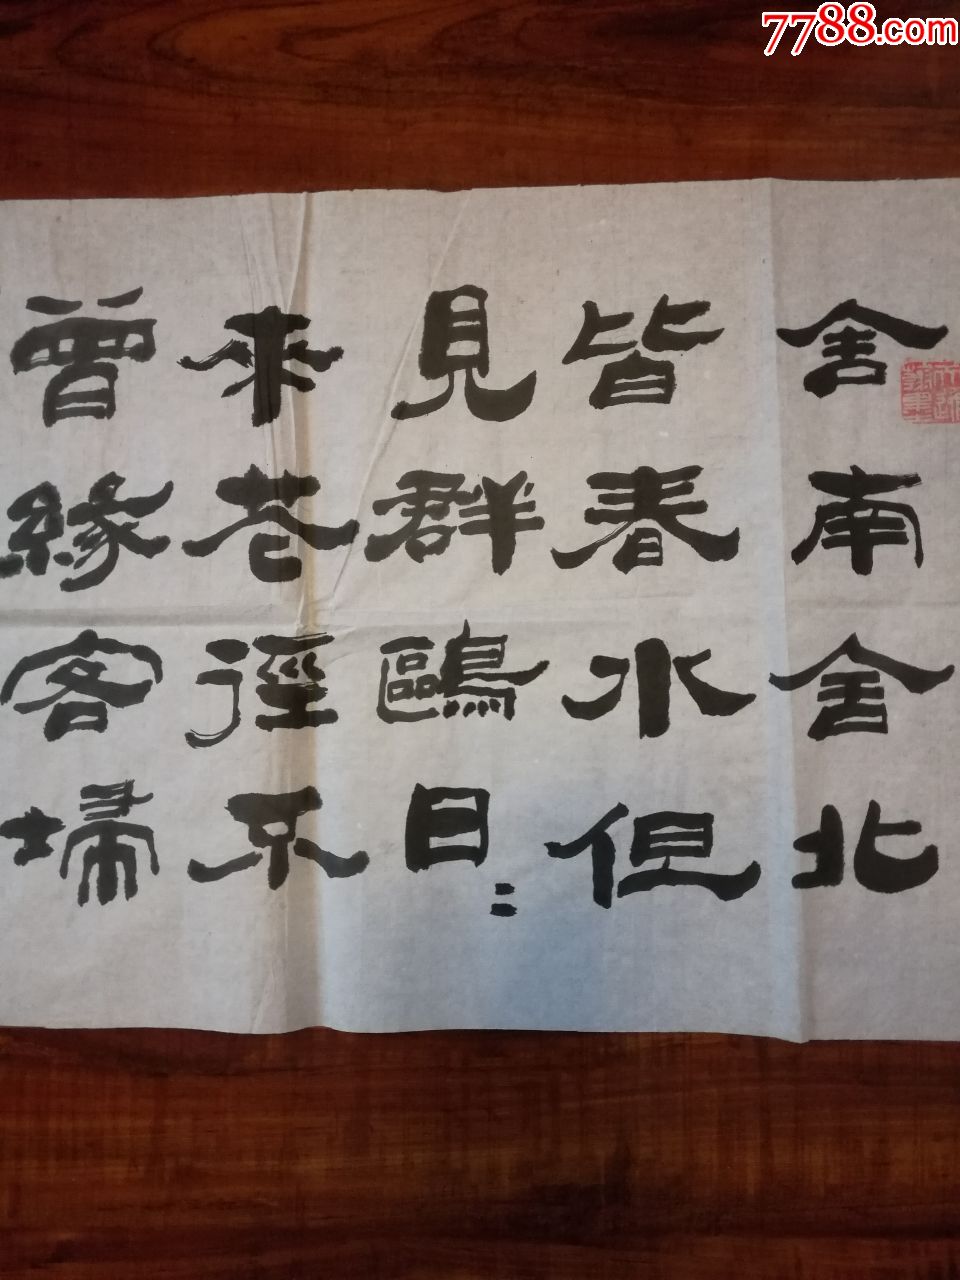 7788.com
舍南舍北
皆春水但
見群鷗日〻
来花徑不
曾緣客埽